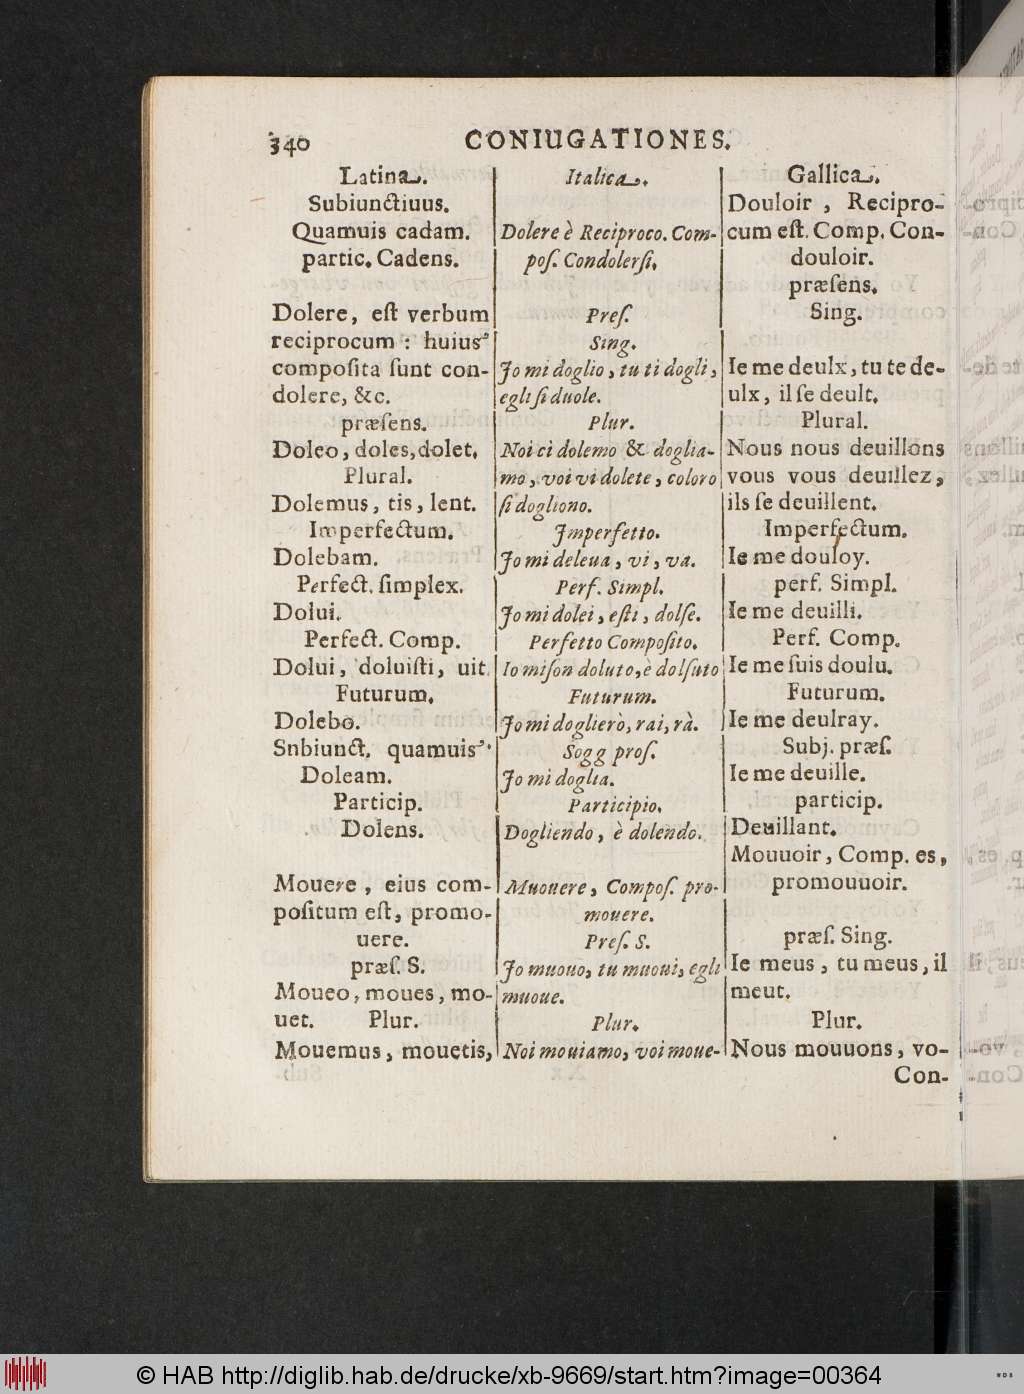 340 CONIUGATIONES.
Latina.
Subiunctiuus.
Quamuis cadam.
partic. Cadens.
Dolere, eſt verbum
reciprocum : huius
compoſita ſunt con-
dolere, &c.
præſens.
Doleo, doles, dolet.
Plural.
Dolemus, tis, lent.
Imperfectum.
Dolebam.
Perfect. ſimplex.
Dolui.
Perfect. Comp.
Dolui, doluiſti, uit.
Futurum.
Dolebo.
Snbiunct. quamuis
Doleam.
Particip.
Dolens.
Mouere, eius com-
poſitum eſt, promo-
uere.
præſ. S.
Moueo, moues, mo-
uet. Plur.
Mouemus, mouetis,
Italica.
Dolere è Reciproco. Com-
poſ. Condolerſi.
Preſ.
Sing.
Jo mi doglio, tu ti dogli,
egli ſi duole.
Plur.
Noi ci dolemo & doglia-
mo, voi vi dolete, coloro
ſi dogliono.
Jmperfetto.
Jo mi doleua, vi, va.
Perf. Simpl.
Jo mi dolei, eſti, dolſe.
Perfetto Compoſito.
Io mi ſon doluto, è dolſuto
Futurum.
Jo mi doglierò, rai, rà.
Sogg proſ.
Jo mi doglia.
Participio.
Dogliendo, è dolendo.
Muouere, Compoſ. pro-
mouere.
Preſ. S.
Jo muouo, tu muoui, egli
muoue.
Plur.
Noi mouiamo, voi moue-
Gallica.
Douloir, Recipro-
cum eſt. Comp. Con-
douloir.
præſens.
Sing.
Ie me deulx, tu te de-
ulx, il ſe deult.
Plural.
Nous nous deuillons
vous vous deuillez,
ils ſe deuillent.
Imperfectum.
Ie me douloy.
perf. Simpl.
Ie me deuilli.
Perf. Comp.
Ie me ſuis doulu.
Futurum.
Ie me deulray.
Subj. præſ.
Ie me deuille.
particip.
Deuillant.
Mouuoir, Comp. es,
promouuoir.
præſ. Sing.
Ie meus, tu meus, il
meut.
Plur.
Nous mouuons, vo-
Con-
© HAB http://diglib.hab.de/drucke/xb-9669/start.htm?image=00364